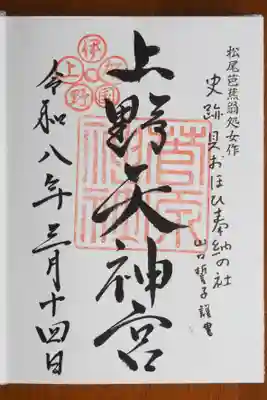 松尾芭蕉翁処女作
史跡貝おほひ奉納の社
山口誓子謹書
上野天神宮
菅原神社
伊賀上野
令和八年三月十四日